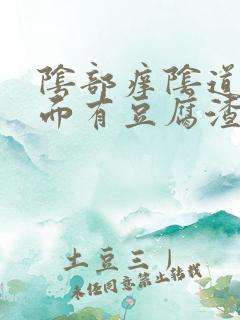 陰部痒陰道
而有豆腐渣
土豆三丿
未经同意禁止转载